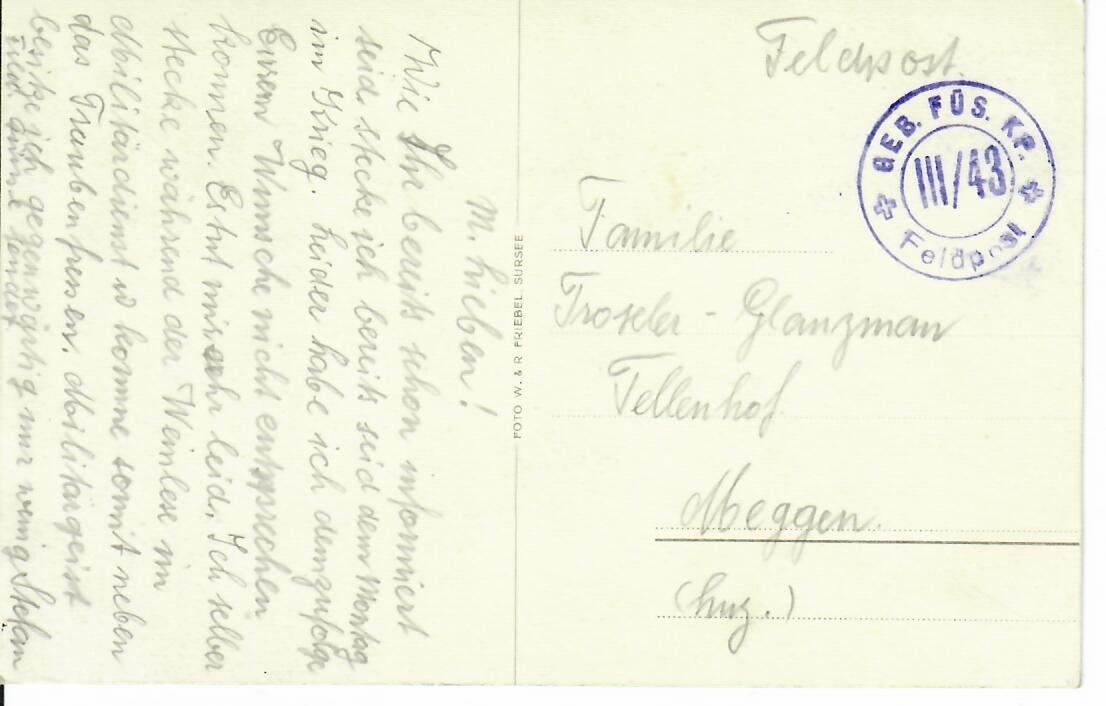 M. Lieben!
Wie Ihr bereits schon informiert
seid, stecke ich bereits seid dem Montag
im Krieg. Leider habe ich demzufolge
Eurem Wunsche nicht entsprechen
können. Es tut mir sehr leid. Ich selber
stecke während der Weinlese im
Militärdienst u komme somit neben
das Traubenfressen. Militärgeist
besitze ich gegenwärtig nur wenig. Stefan
FOTO W. & R. FRIEBEL, SURSEE
Feldpost.
GEB. FÜS. KP.
III/43
Feldpost
Familie
Troxler - Glanzman
Tellenhof
Meggen.
(Luz.)